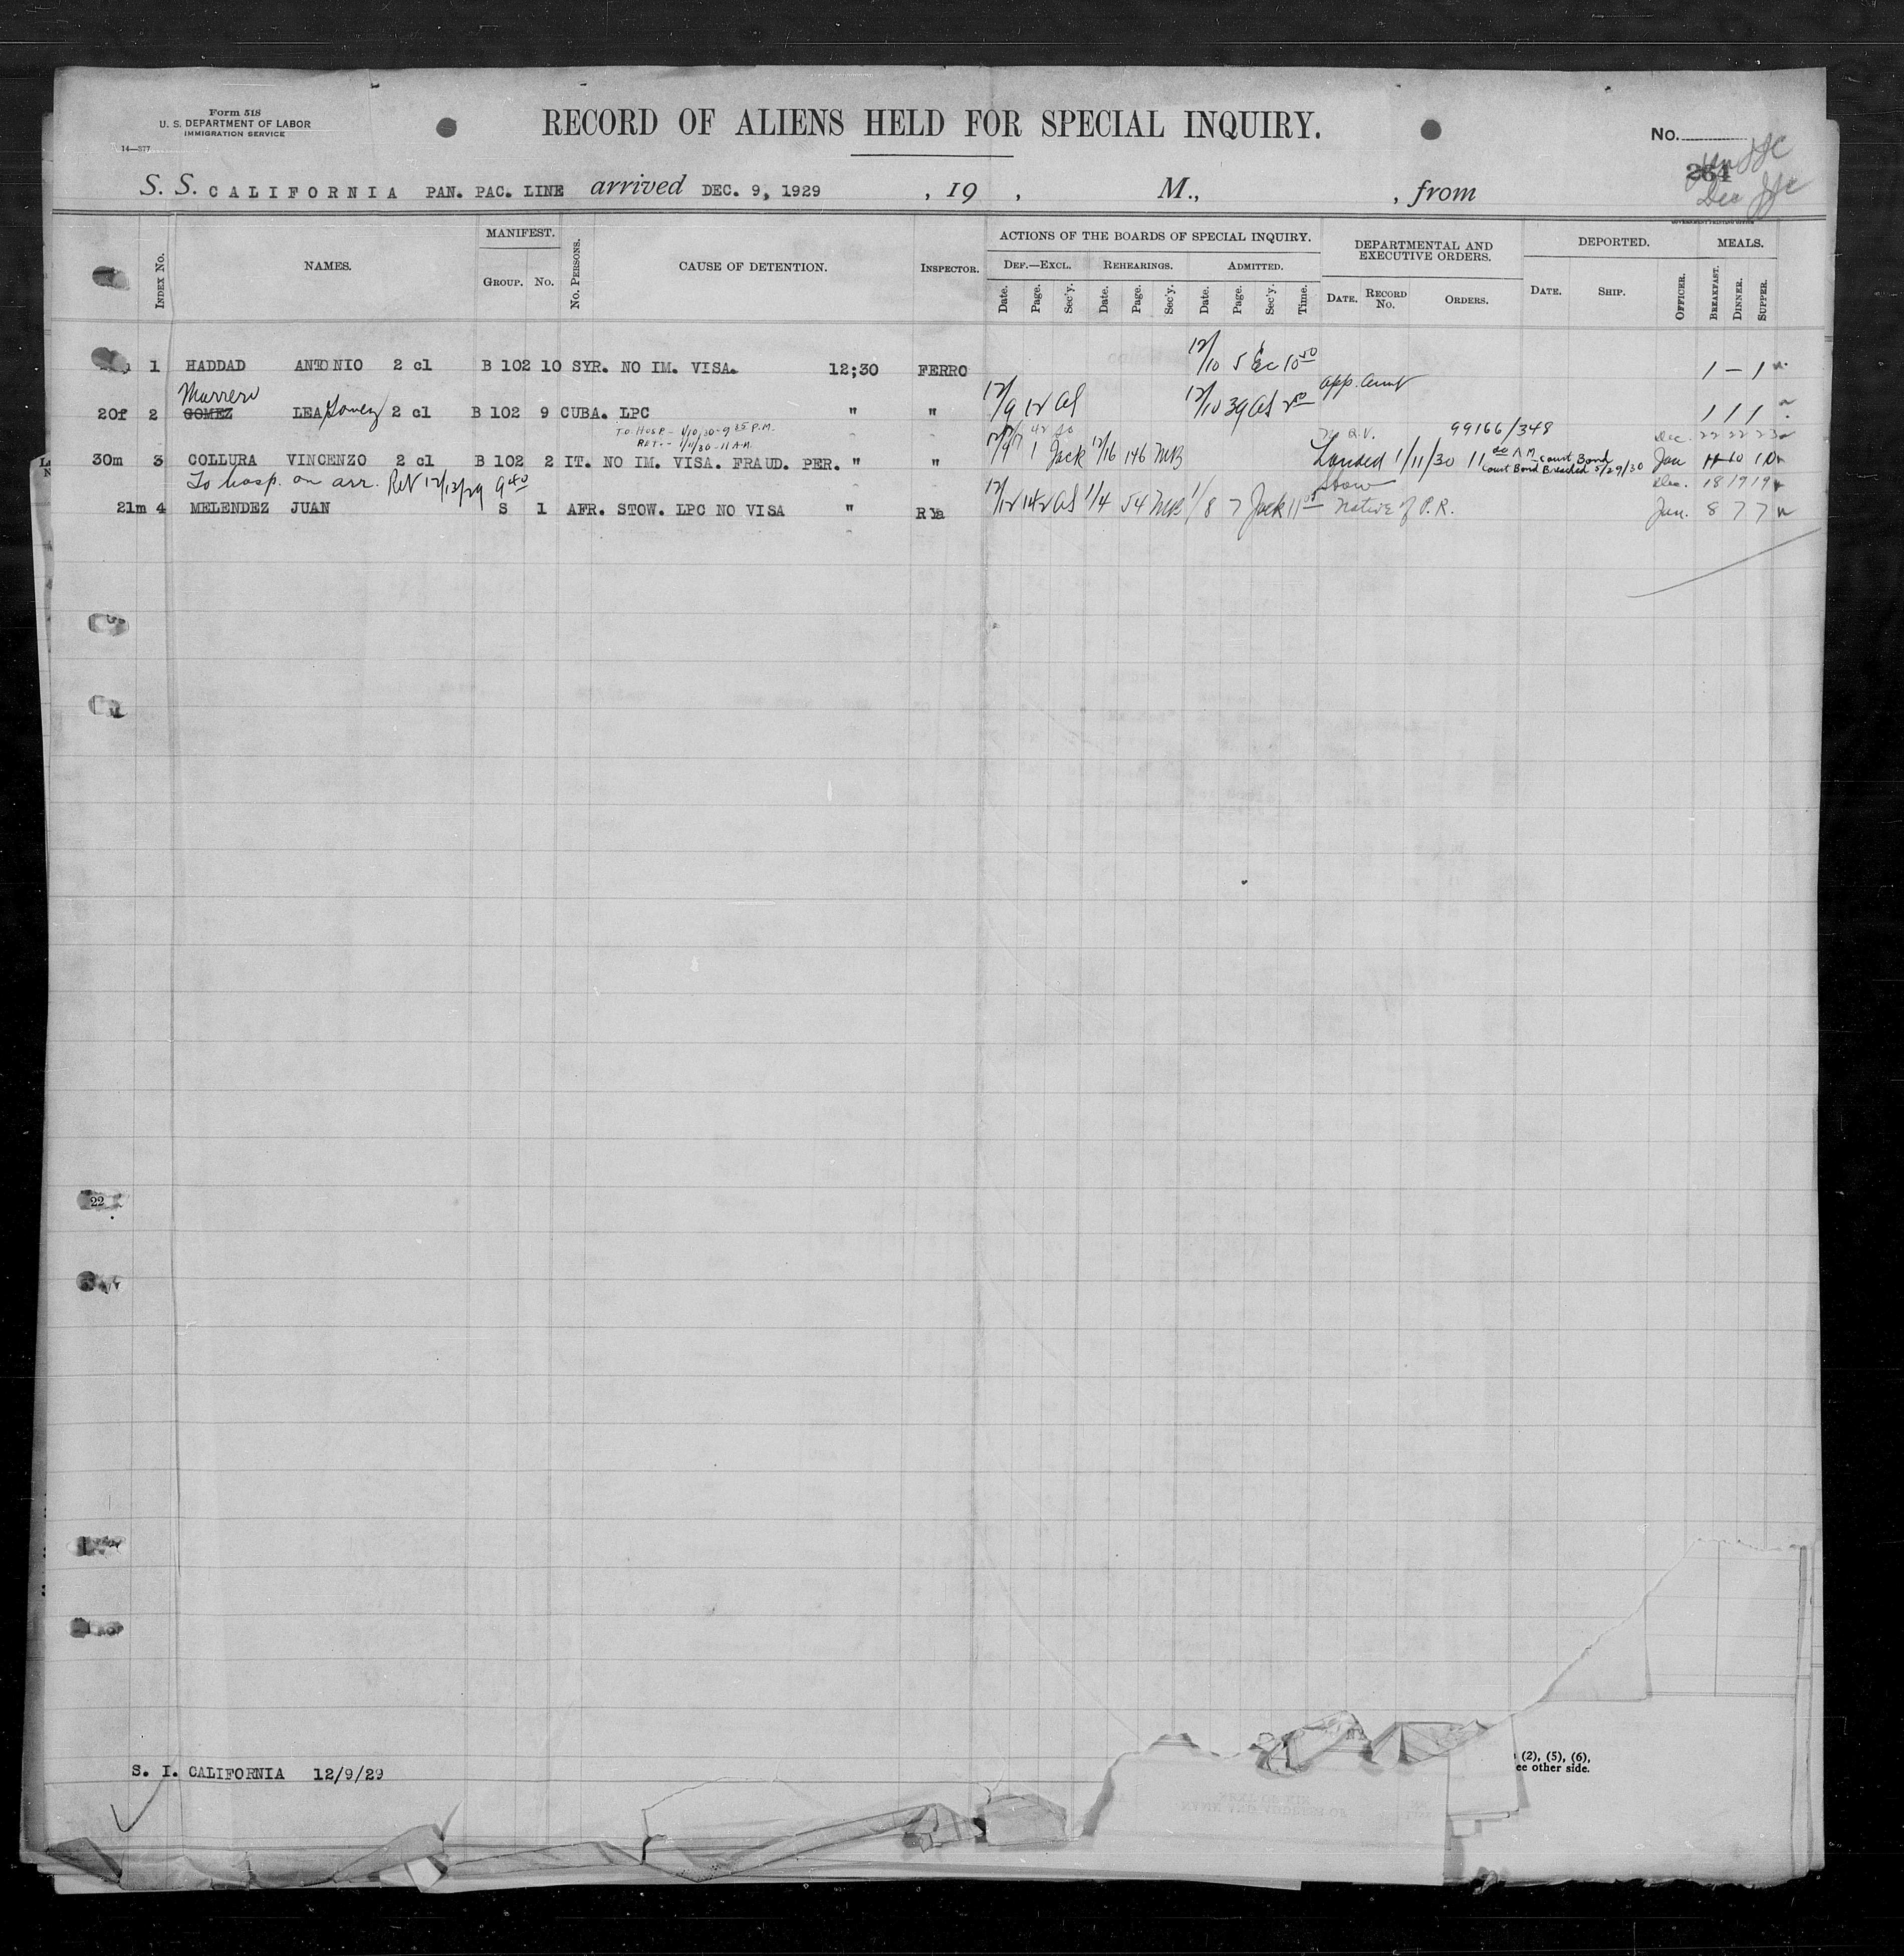 Form 518
U. S. DEPARTMENT OF LABOR
IMMIGRATION SERVICE
14—377
RECORD OF ALIENS HELD FOR SPECIAL INQUIRY.
No.
264
Dec
S. S. CALIFORNIA PAN. PAC. LINE arrived DEC. 9, 1929 , 19 , M., , from
GOVERNMENT PRINTING OFFICE
Index No. NAMES. MANIFEST. Group. No. No. Persons. CAUSE OF DETENTION. Inspector. ACTIONS OF THE BOARDS OF SPECIAL INQUIRY. DEPARTMENTAL AND EXECUTIVE ORDERS. DEPORTED. MEALS.
Def.—Excl. Rehearings. Admitted.
Date. Page. Sec'y. Date. Page. Sec'y. Date. Page. Sec'y. Time. Date. Record No. Orders. Date. Ship. Officer. Breakfast. Dinner. Supper.
1 HADDAD ANTONIO 2 cl B 102 10 SYR. NO IM. VISA. 12;30 FERRO 12/10 5 Ec 10 50 1 — 1
Marrero
20f 2 GOMEZ LEA Gomez 2 cl B 102 9 CUBA. LPC " " 12/9 12 AS 12/10 39 AS 2 50 app. aunt 1 1 1
TO HOSP. - 1/10/30 - 9 25 P.M.
RET. - 1/11/30 - 11 A.M.
99166/348 Dec. 22 22 23
30m 3 COLLURA VINCENZO 2 cl B 102 2 IT. NO IM. VISA. FRAUD. PER. " " 12/9 1 Jack 12/16 146 MB Landed 1/11/30 11 00 A.M. Court Bond Jan 11 10 10
Court Bond Breached 5/29/30
To hosp. on arr. Ret 12/12/29 9 40 Stow Dec. 18 19 19
21m 4 MELENDEZ JUAN S 1 AFR. STOW. LPC NO VISA " 12/12 142 AS 1/4 54 MB 1/8 7 Jack 11 05 Native of P.R. Jan. 8 7 7
22
S. I. CALIFORNIA 12/9/29
(2), (5), (6),
ee other side.